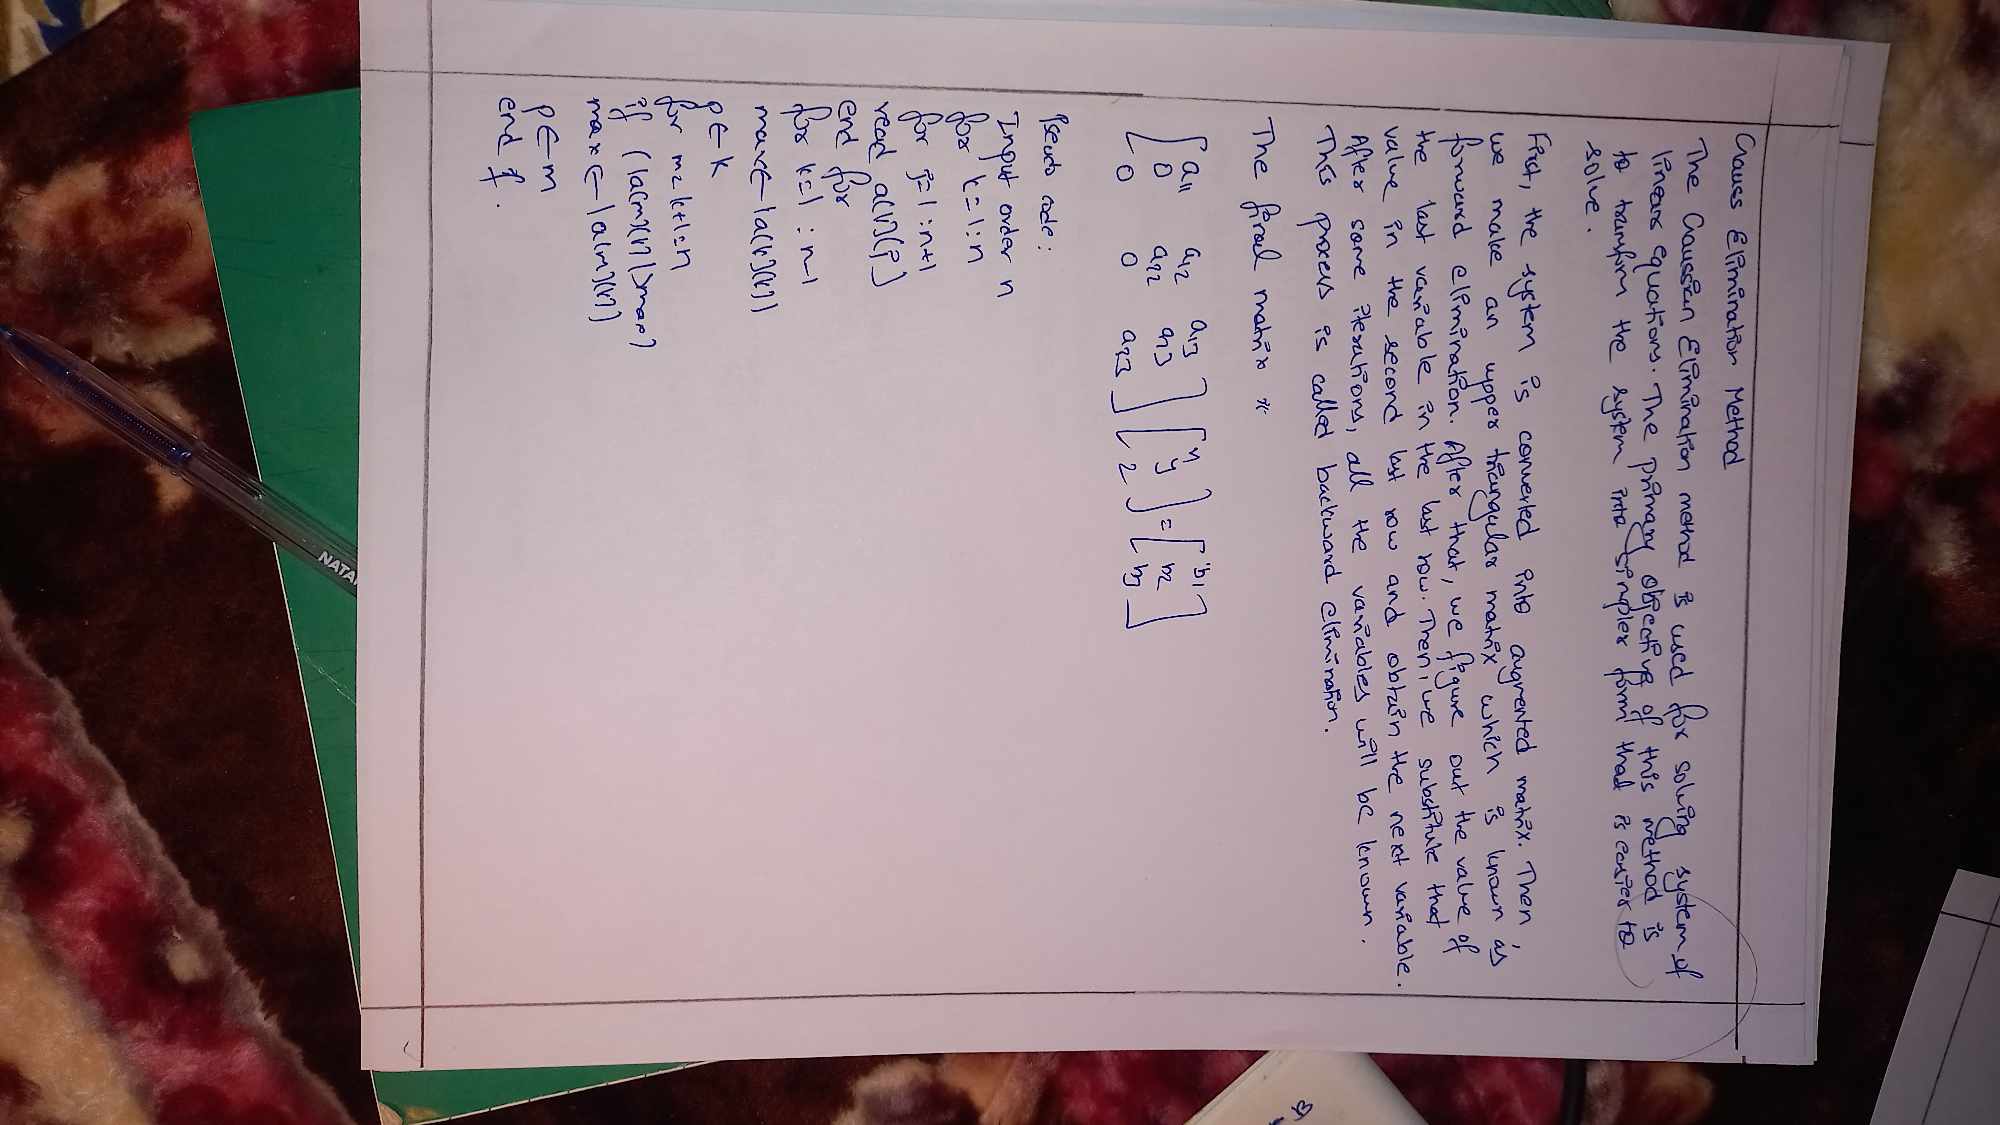 Gauss Elimination Method
The Gaussian Elimination method is used for solving system of
linear equations. The primary objective of this method is
to transform the system into simpler form that is easier to
solve.
First, the system is converted into augmented matrix. Then,
we make an upper triangular matrix which is known as
forward elimination. After that, we figure out the value of
the last variable in the last row. Then, we substitute that
value in the second last row and obtain the next variable.
After some iterations, all the variables will be known.
This process is called backward elimination.
The final matrix is
[a11 a12 a13] [x] = [b1]
[0 a22 a23] [y] [b2]
[0 0 a33] [z] [b3]
Pseudo code:
Input order n
for k=1:n
for j=1:n+1
read a[k][j]
end for
for k=1:n-1
max←|a[k][k]|
p←k
for m=k+1:n
if (|a[m][k]|>max)
max←|a[m][k]|
p←m
end if.
NATA